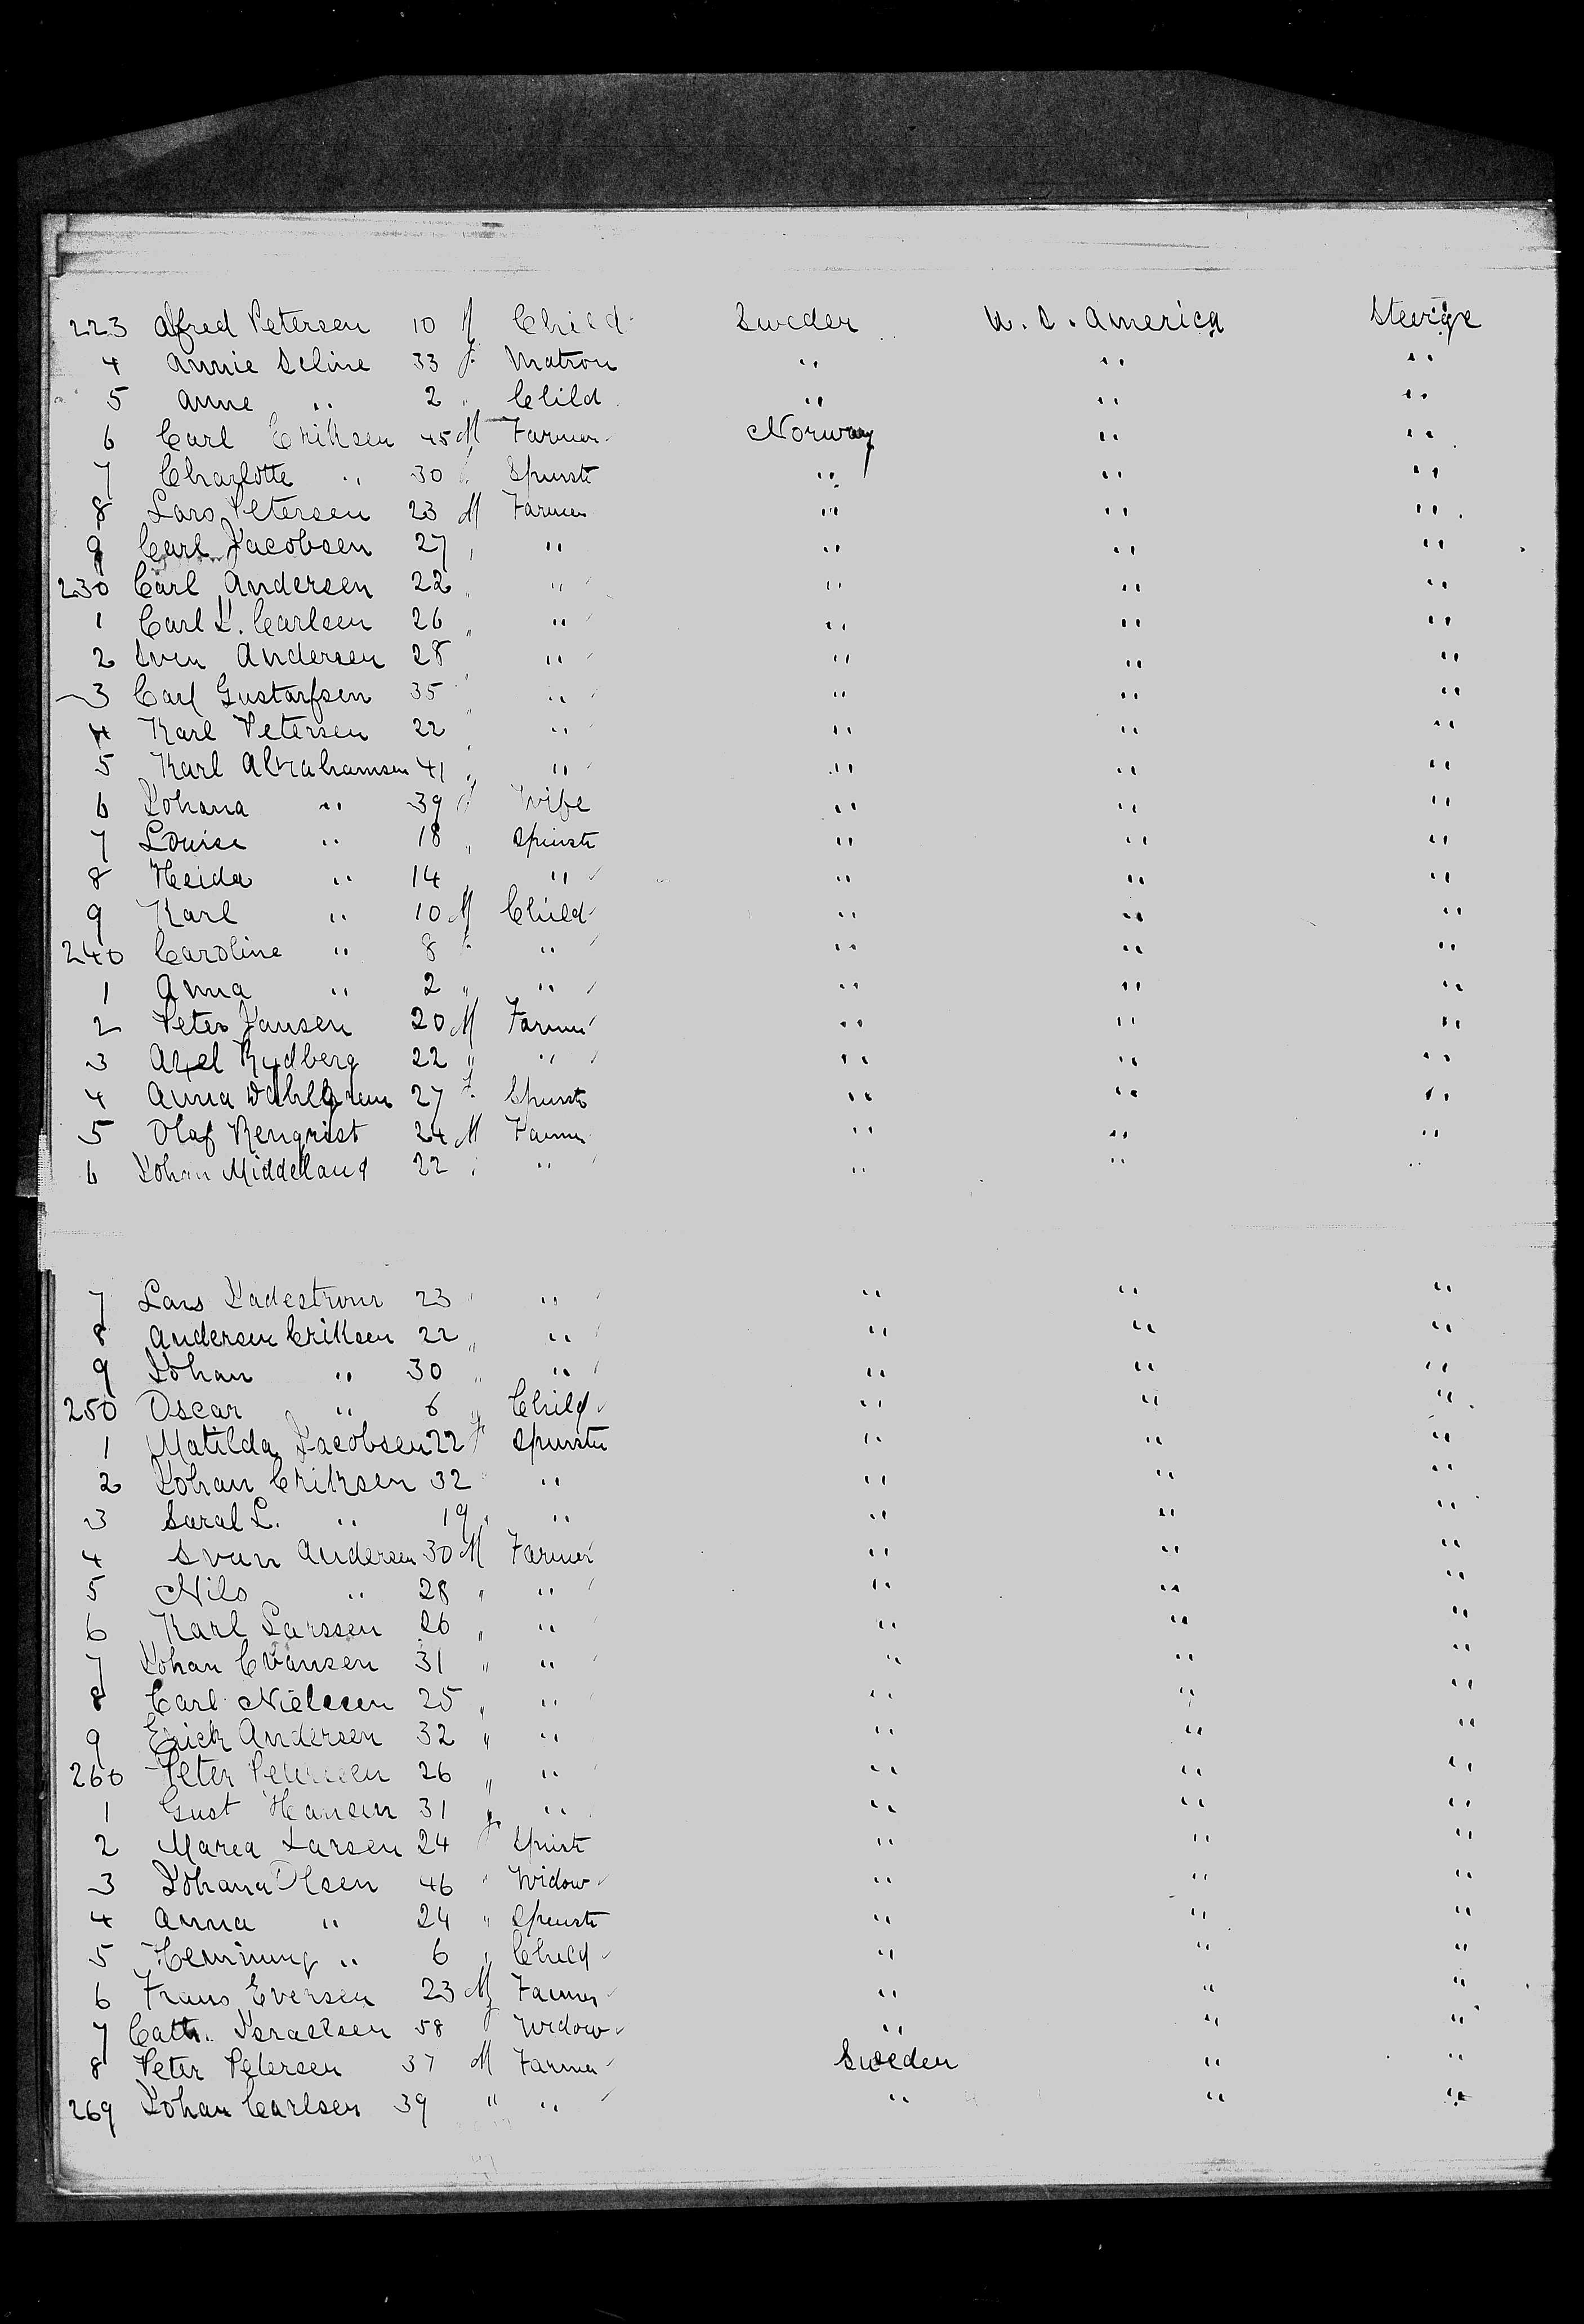 223 Alfred Petersen 10 M Child Sweden U. S. America Steerge
4 Annie Seline 33 f. Matron " " "
5 Anne " 2 " Child " " "
6 Carl Eriksen 45 M Farmer Norway " "
7 Charlotte " 30 f. Spinstr " " "
8 Lars Petersen 23 M Farmer " " "
9 Carl Jacobsen 27 " " " " "
230 Carl Andersen 22 " " " " "
1 Carl J. Carlsen 26 " " " " "
2 Sven Andersen 28 " " " " "
3 Carl Gustafsen 35 " " " " "
4 Karl Petersen 22 " " " " "
5 Karl Abrahamsen 41 " " " " "
6 Johana " 39 f Wife " " "
7 Louise " 18 " Spinstr " " "
8 Heida " 14 " " " " "
9 Karl " 10 M Child " " "
240 Caroline " 8 f. " " " "
1 Anna " 2 " " " " "
2 Peter Jansen 20 M Farmer " " "
3 Axel Rydberg 22 " " " " "
4 Anna Dahlgren 27 f. Spinstr " " "
5 Olaf Renqvist 24 M Farmer " " "
6 Johan Middeland 22 " " " " "
7 Lars Jadestrom 23 " " " " "
8 Andersen Eriksen 22 " " " " "
9 Johan " 30 " " " " "
250 Oscar " 6 " Child " " "
1 Matilda Jacobsen 22 f Spinster " " "
2 Johan Eriksen 32 " " " " "
3 Saral L. " 19 " " " " "
4 Svan Andersen 30 M Farmer " " "
5 Nils " 28 " " " " "
6 Karl Larssen 26 " " " " "
7 Johan Evansen 31 " " " " "
8 Carl Nielsen 25 " " " " "
9 Erick Andersen 32 " " " " "
260 Peter Petersen 26 " " " " "
1 Gust Hansen 31 " " " " "
2 Marea Larsen 24 f. Spinstr " " "
3 Johana Olsen 46 " Widow " " "
4 Anna " 24 " Spinstr " " "
5 Henning " 6 " Child " " "
6 Frans Eversen 23 M Farmer " " "
7 Cath. Israelsen 58 f Widow " " "
8 Peter Petersen 37 M Farmer Sweden " "
269 Johan Carlsen 39 " " " " "